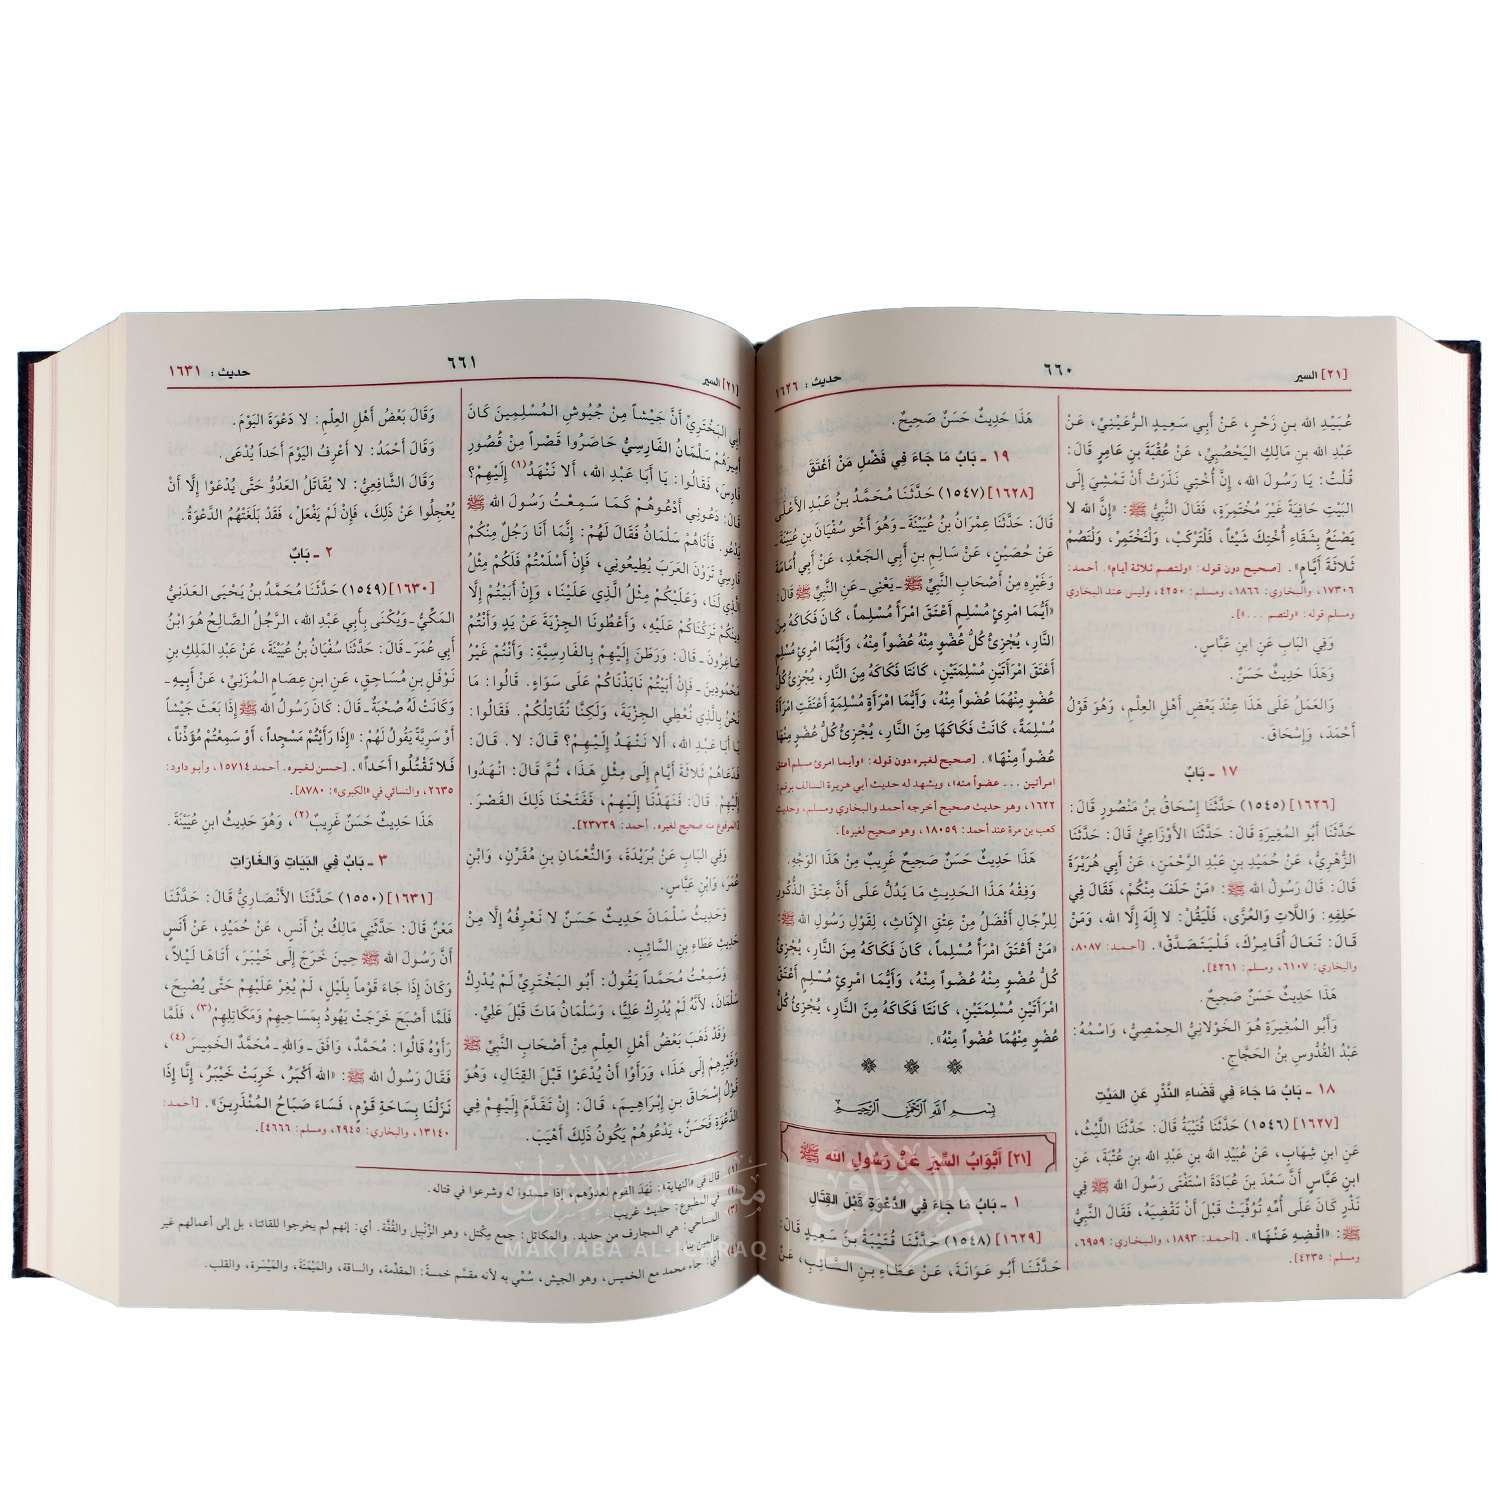 [٢١] السير
٦٦٠
حديث : ١٦٢٦
عُبَيْدِ الله بنِ زَحْرٍ، عَنْ أَبي سَعِيدٍ الرُّعَيْنِيِّ، عَنْ
عَبْدِ الله بنِ مَالِكٍ اليَحْصُبِيِّ، عَنْ عُقْبَةَ بنِ عَامِرٍ قَالَ:
قُلْتُ: يَا رَسُولَ الله، إِنَّ أُخْتِي نَذَرَتْ أَنْ تَمْشِيَ إِلَى
البَيْتِ حَافِيَةً غَيْرَ مُخْتَمِرَةٍ، فَقَالَ النَّبِيُّ ﷺ: «إِنَّ الله لا
يَصْنَعُ بِشَقَاءِ أُخْتِكَ شَيْئاً، فَلْتَرْكَبْ، وَلْتَخْتَمِرْ، وَلْتَصُمْ
ثَلاثَةَ أَيَّامٍ». [صحيح دون قوله: «ولتصم ثلاثة أيام». أحمد:
١٧٣٠٦، والبخاري: ١٨٦٦، ومسلم: ٤٢٥٠، وليس عند البخاري
ومسلم قوله: «ولتصم ...»].
وَفِي البَابِ عَنِ ابنِ عَبَّاسٍ.
وَهَذَا حَدِيثٌ حَسَنٌ.
وَالعَمَلُ عَلَى هَذَا عِنْدَ بَعْضِ أَهْلِ العِلْمِ، وَهُوَ قَوْلُ
أَحْمَدَ، وَإِسْحَاقَ.
١٧ ـ بَابٌ
[١٦٢٦] (١٥٤٥) حَدَّثَنَا إِسْحَاقُ بنُ مَنْصُورٍ قَالَ:
حَدَّثَنَا أَبُو المُغِيرَةِ قَالَ: حَدَّثَنَا الأَوْزَاعِيُّ قَالَ: حَدَّثَنَا
الزُّهْرِيُّ، عَنْ حُمَيْدِ بنِ عَبْدِ الرَّحْمَنِ، عَنْ أَبِي هُرَيْرَةَ
قَالَ: قَالَ رَسُولُ الله ﷺ: «مَنْ حَلَفَ مِنْكُمْ، فَقَالَ فِي
حَلِفِهِ: وَاللَّاتِ وَالعُزَّى، فَلْيَقُلْ: لا إِلَهَ إِلَّا الله، وَمَنْ
قَالَ: تَعَالَ أُقَامِرْكَ، فَلْيَتَصَدَّقْ». [أحمد: ٨٠٨٧،
والبخاري: ٦١٠٧، ومسلم: ٤٢٦١].
هَذَا حَدِيثٌ حَسَنٌ صَحِيحٌ.
وَأَبُو المُغِيرَةِ هُوَ الخَوْلانِيُّ الحِمْصِيُّ، وَاسْمُهُ:
عَبْدُ القُدُّوسِ بنُ الحَجَّاجِ.
١٨ ـ بَابُ مَا جَاءَ فِي قَضَاءِ النَّذْرِ عَنِ المَيِّتِ
[١٦٢٧] (١٥٤٦) حَدَّثَنَا قُتَيْبَةُ قَالَ: حَدَّثَنَا اللَّيْثُ،
عَنِ ابنِ شِهَابٍ، عَنْ عُبَيْدِ الله بنِ عَبْدِ الله بنِ عُتْبَةَ، عَنِ
ابنِ عَبَّاسٍ أَنَّ سَعْدَ بنَ عُبَادَةَ اسْتَفْتَى رَسُولَ الله ﷺ فِي
نَذْرٍ كَانَ عَلَى أُمِّهِ تُوُفِّيَتْ قَبْلَ أَنْ تَقْضِيَهُ، فَقَالَ النَّبِيُّ
ﷺ: «اقْضِهِ عَنْهَا». [أحمد: ١٨٩٣، والبخاري: ٦٩٥٩،
ومسلم: ٤٢٣٥].
هَذَا حَدِيثٌ حَسَنٌ صَحِيحٌ.
١٩ ـ بَابُ مَا جَاءَ فِي فَضْلِ مَنْ أَعْتَقَ
[١٦٢٨] (١٥٤٧) حَدَّثَنَا مُحَمَّدُ بنُ عَبْدِ الأَعْلَى
قَالَ: حَدَّثَنَا عِمْرَانُ بنُ عُيَيْنَةَ ـ وَهُوَ أَخُو سُفْيَانَ بنِ عُيَيْنَةَ ـ
عَنْ حُصَيْنٍ، عَنْ سَالِمِ بنِ أَبِي الجَعْدِ، عَنْ أَبِي أُمَامَةَ
وَغَيْرِهِ مِنْ أَصْحَابِ النَّبِيِّ ﷺ ـ يَعْنِي ـ عَنِ النَّبِيِّ ﷺ قَالَ:
«أَيُّمَا امْرِئٍ مُسْلِمٍ أَعْتَقَ امْرَأً مُسْلِماً، كَانَ فَكَاكَهُ مِنَ
النَّارِ، يُجْزِئُ كُلُّ عُضْوٍ مِنْهُ عُضْواً مِنْهُ، وَأَيُّمَا امْرِئٍ مُسْلِمٍ
أَعْتَقَ امْرَأَتَيْنِ مُسْلِمَتَيْنِ، كَانَتَا فَكَاكَهُ مِنَ النَّارِ، يُجْزِئُ كُلُّ
عُضْوٍ مِنْهُمَا عُضْواً مِنْهُ، وَأَيُّمَا امْرَأَةٍ مُسْلِمَةٍ أَعْتَقَتِ امْرَأَةً
مُسْلِمَةً، كَانَتْ فَكَاكَهَا مِنَ النَّارِ، يُجْزِئُ كُلُّ عُضْوٍ مِنْهَا
عُضْواً مِنْهَا». [صحيح لغيره دون قوله: «وأيما امرئ مسلم أعتق
امرأتين ... عضواً منه»، ويشهد له حديث أبي هريرة السالف برقم:
١٦٢٢، وهو حديث صحيح أخرجه أحمد والبخاري ومسلم، وحديث
كعب بن مرة عند أحمد: ١٨٠٥٩، وهو صحيح لغيره]
هَذَا حَدِيثٌ حَسَنٌ صَحِيحٌ غَرِيبٌ مِنْ هَذَا الوَجْهِ.
وَفِقْهُ هَذَا الحَدِيثِ مَا يَدُلُّ عَلَى أَنَّ عِتْقَ الذُّكُورِ
لِلرِّجَالِ أَفْضَلُ مِنْ عِتْقِ الإِنَاثِ، لِقَوْلِ رَسُولِ الله ﷺ:
«مَنْ أَعْتَقَ امْرَأً مُسْلِماً، كَانَ فَكَاكَهُ مِنَ النَّارِ، يُجْزِئُ
كُلُّ عُضْوٍ مِنْهُ عُضْواً مِنْهُ، وَأَيُّمَا امْرِئٍ مُسْلِمٍ أَعْتَقَ
امْرَأَتَيْنِ مُسْلِمَتَيْنِ، كَانَتَا فَكَاكَهُ مِنَ النَّارِ، يُجْزِئُ كُلُّ
عُضْوٍ مِنْهُمَا عُضْواً مِنْهُ».
بِسْمِ اللَّهِ الرَّحْمَنِ الرَّحِيمِ
[٢١] أَبْوَابُ السِّيَرِ عَنْ رَسُولِ الله ﷺ
١ ـ بَابُ مَا جَاءَ فِي الدَّعْوَةِ قَبْلَ القِتَالِ
[١٦٢٩] (١٥٤٨) حَدَّثَنَا قُتَيْبَةُ بنُ سَعِيدٍ قَالَ:
حَدَّثَنَا أَبُو عَوَانَةَ، عَنْ عَطَاءِ بنِ السَّائِبِ، عَنْ
[٢١] السير
٦٦١
حديث : ١٦٣١
أَبِي البَخْتَرِيِّ أَنَّ جَيْشاً مِنْ جُيُوشِ المُسْلِمِينَ كَانَ
أَمِيرَهُمْ سَلْمَانُ الفَارِسِيُّ حَاصَرُوا قَصْراً مِنْ قُصُورِ
فَارِسَ، فَقَالُوا: يَا أَبَا عَبْدِ الله، أَلا نَنْهَدُ(١) إِلَيْهِمْ؟
قَالَ: دَعُونِي أَدْعُوهُمْ كَمَا سَمِعْتُ رَسُولَ الله ﷺ
يَدْعُو. فَأَتَاهُمْ سَلْمَانُ فَقَالَ لَهُمْ: إِنَّمَا أَنَا رَجُلٌ مِنْكُمْ
فَارِسِيٌّ تَرَوْنَ العَرَبَ يُطِيعُونِي، فَإِنْ أَسْلَمْتُمْ فَلَكُمْ مِثْلُ
الَّذِي لَنَا، وَعَلَيْكُمْ مِثْلُ الَّذِي عَلَيْنَا، وَإِنْ أَبَيْتُمْ إِلَّا
دِينَكُمْ تَرَكْنَاكُمْ عَلَيْهِ، وَأَعْطُونَا الجِزْيَةَ عَنْ يَدٍ وَأَنْتُمْ
صَاغِرُونَ ـ قَالَ: وَرَطَنَ إِلَيْهِمْ بِالفَارِسِيَّةِ: وَأَنْتُمْ غَيْرُ
مَحْمُودِينَ ـ فَإِنْ أَبَيْتُمْ نَابَذْنَاكُمْ عَلَى سَوَاءٍ. قَالُوا: مَا
نَحْنُ بِالَّذِي نُعْطِي الجِزْيَةَ، وَلَكِنَّا نُقَاتِلُكُمْ. فَقَالُوا:
يَا أَبَا عَبْدِ الله، أَلا نَنْهَدُ إِلَيْهِمْ؟ قَالَ: لا. قَالَ:
فَدَعَاهُمْ ثَلاثَةَ أَيَّامٍ إِلَى مِثْلِ هَذَا، ثُمَّ قَالَ: انْهَدُوا
إِلَيْهِمْ. قَالَ: فَنَهَدْنَا إِلَيْهِمْ، فَفَتَحْنَا ذَلِكَ القَصْرَ.
[المرفوع منه صحيح لغيره. أحمد: ٢٣٧٣٩].
وَفِي البَابِ عَنْ بُرَيْدَةَ، وَالنُّعْمَانِ بنِ مُقَرِّنٍ، وَابْنِ
عُمَرَ، وَابْنِ عَبَّاسٍ.
وَحَدِيثُ سَلْمَانَ حَدِيثٌ حَسَنٌ لا نَعْرِفُهُ إِلَّا مِنْ
حَدِيثِ عَطَاءِ بنِ السَّائِبِ.
وَسَمِعْتُ مُحَمَّداً يَقُولُ: أَبُو البَخْتَرِيِّ لَمْ يُدْرِكْ
سَلْمَانَ، لأَنَّهُ لَمْ يُدْرِكْ عَلِيًّا، وَسَلْمَانُ مَاتَ قَبْلَ عَلِيٍّ.
وَقَدْ ذَهَبَ بَعْضُ أَهْلِ العِلْمِ مِنْ أَصْحَابِ النَّبِيِّ ﷺ
وَغَيْرِهِمْ إِلَى هَذَا، وَرَأَوْا أَنْ يُدْعَوْا قَبْلَ القِتَالِ، وَهُوَ
قَوْلُ إِسْحَاقَ بنِ إِبْرَاهِيمَ، قَالَ: إِنْ تَقَدَّمَ إِلَيْهِمْ فِي
الدَّعْوَةِ فَحَسَنٌ، يَدْعُوهُمْ يَكُونُ ذَلِكَ أَهْيَبَ.
وَقَالَ بَعْضُ أَهْلِ العِلْمِ: لا دَعْوَةَ اليَوْمَ.
وَقَالَ أَحْمَدُ: لا أَعْرِفُ اليَوْمَ أَحَداً يُدْعَى.
وَقَالَ الشَّافِعِيُّ: لا يُقَاتَلُ العَدُوُّ حَتَّى يُدْعَوْا إِلَّا أَنْ
يُعْجِلُوا عَنْ ذَلِكَ، فَإِنْ لَمْ يَفْعَلْ، فَقَدْ بَلَغَتْهُمُ الدَّعْوَةُ.
٢ ـ بَابٌ
[١٦٣٠] (١٥٤٩) حَدَّثَنَا مُحَمَّدُ بنُ يَحْيَى العَدَنِيُّ
المَكِّيُّ ـ وَيُكْنَى بِأَبِي عَبْدِ الله، الرَّجُلُ الصَّالِحُ هُوَ ابْنُ
أَبِي عُمَرَ ـ قَالَ: حَدَّثَنَا سُفْيَانُ بنُ عُيَيْنَةَ، عَنْ عَبْدِ المَلِكِ بنِ
نَوْفَلِ بنِ مُسَاحِقٍ، عَنِ ابنِ عِصَامٍ المُزَنِيِّ، عَنْ أَبِيهِ ـ
وَكَانَتْ لَهُ صُحْبَةٌ ـ قَالَ: كَانَ رَسُولُ الله ﷺ إِذَا بَعَثَ جَيْشاً
أَوْ سَرِيَّةً يَقُولُ لَهُمْ: «إِذَا رَأَيْتُمْ مَسْجِداً، أَوْ سَمِعْتُمْ مُؤَذِّناً،
فَلا تَقْتُلُوا أَحَداً». [حسن لغيره. أحمد ١٥٧١٤، وأبو داود:
٢٦٣٥، والنسائي في «الكبرى»: ٨٧٨٠].
هَذَا حَدِيثٌ حَسَنٌ غَرِيبٌ(٢)، وَهُوَ حَدِيثُ ابنِ عُيَيْنَةَ.
٣ ـ بَابٌ فِي البَيَاتِ وَالغَارَاتِ
[١٦٣١] (١٥٥٠) حَدَّثَنَا الأَنْصَارِيُّ قَالَ: حَدَّثَنَا
مَعْنٌ قَالَ: حَدَّثَنِي مَالِكُ بنُ أَنَسٍ، عَنْ حُمَيْدٍ، عَنْ أَنَسٍ
أَنَّ رَسُولَ الله ﷺ حِينَ خَرَجَ إِلَى خَيْبَرَ، أَتَاهَا لَيْلاً،
وَكَانَ إِذَا جَاءَ قَوْماً بِلَيْلٍ، لَمْ يُغِرْ عَلَيْهِمْ حَتَّى يُصْبِحَ،
فَلَمَّا أَصْبَحَ خَرَجَتْ يَهُودُ بِمَسَاحِيهِمْ وَمَكَاتِلِهِمْ(٣)، فَلَمَّا
رَأَوْهُ قَالُوا: مُحَمَّدٌ، وَافَقَ ـ وَاللهِ ـ مُحَمَّدٌ الخَمِيسَ(٤)،
فَقَالَ رَسُولُ الله ﷺ: «الله أَكْبَرُ، خَرِبَتْ خَيْبَرُ، إِنَّا إِذَا
نَزَلْنَا بِسَاحَةِ قَوْمٍ، فَسَاءَ صَبَاحُ المُنْذَرِينَ». [أحمد:
١٣١٤٠، والبخاري: ٢٩٤٥، ومسلم: ٤٦٦٦].
(١) قال في «النهاية»: نَهَدَ القوم لعدوهم، إذا صمدوا له وشرعوا في قتاله.
(٢) في المطبوع: حديث غريب.
(٣) المساحي: هي المجارف من حديد. والمكاتل: جمع مِكْتل، وهو الزَّنْبيل والقُفَّة. أي: إنهم لم يخرجوا للقائنا، بل إلى أعمالهم غير
عالمين بنا.
(٤) أي: جاء محمد مع الخميس، وهو الجيش، سُمِّي به لأنه مقسَّم خمسة: المقدّمة، والساقة، والمَيْمَنَة، والمَيْسَرة، والقلب.
مكتبة الإشراق
MAKTABA AL-ICHRAQ